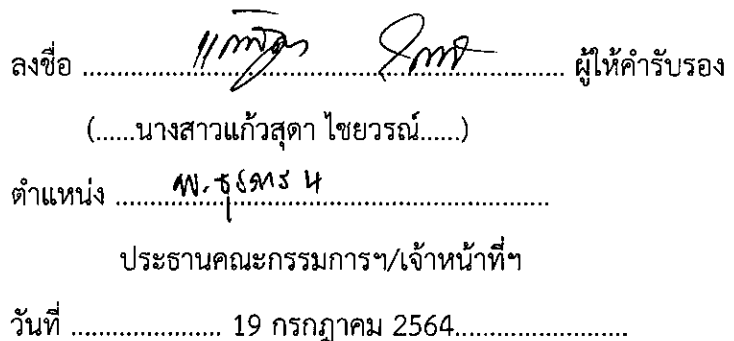 ลงชื่อ ........................................................................ ผู้ให้คำรับรอง
(......นางสาวแก้วสุดา ไชยวรณ์......)
ตำแหน่ง ......พ.ธุรการ ฯ......
ประธานคณะกรรมการฯ/เจ้าหน้าที่ฯ
วันที่ ...................... 19 กรกฎาคม 2564.........................